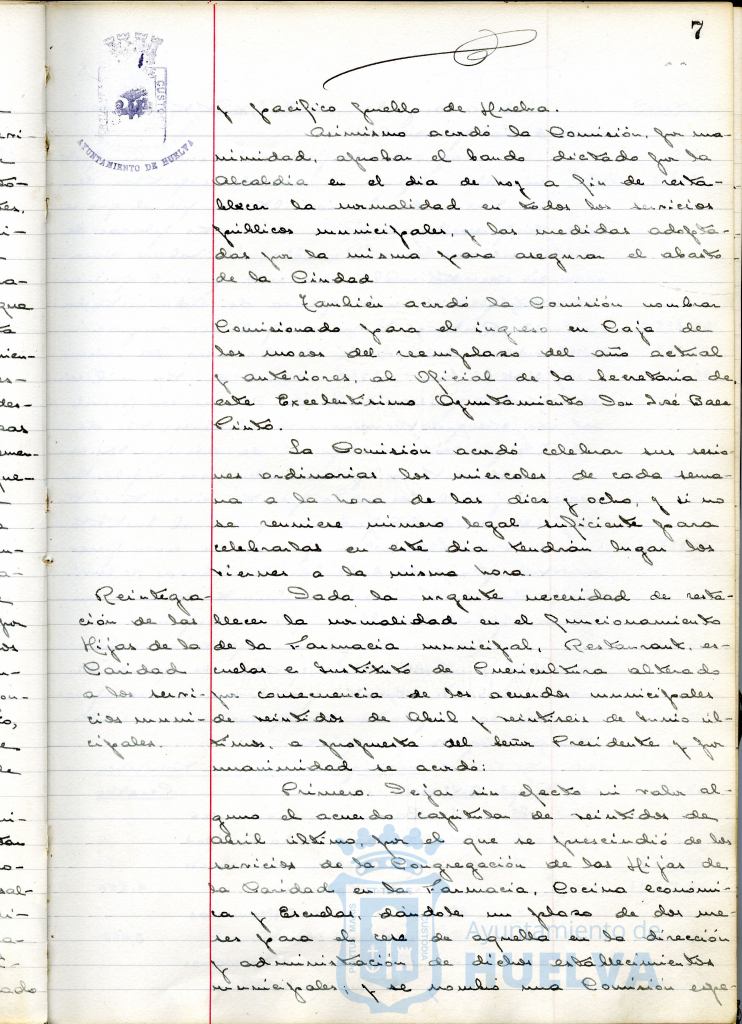 7
AYUNTAMIENTO DE HUELVA
y pacífico pueblo de Huelva.
Asimismo acordó la Comisión, por una-
nimidad, aprobar el bando dictado por la
Alcaldía en el dia de hoy a fin de resta-
blecer la normalidad en todos los servicios
públicos municipales, y las medidas adopta-
das por la misma para asegurar el abasto
de la Ciudad
También acordó la Comisión nombrar
Comisionado para el ingreso en Caja de
los mozos del reemplazo del año actual
y anteriores, al Oficial de la Secretaria de
este Excelentísimo Ayuntamiento Don José Baez
Pinto.
La Comisión acordó celebrar sus sesio-
nes ordinarias los miercoles de cada sema-
na a la hora de las diez y ocho, y si no
se reuniese número legal suficiente para
celebrarlas en este dia tendrán lugar los
viernes a la misma hora.
Reintegra-
ción de las
Hijas de la
Caridad
a los servi-
cios muni-
cipales.
Dada la urgente necesidad de resta-
blecer la normalidad en el funcionamiento
de la Farmacia municipal, Restaurant, es-
cuelas e Instituto de Puericultura alterado
por consecuencia de los acuerdos municipales
de veintidos de Abril y veintiseis de Junio úl-
timos, a propuesta del Señor Presidente y por
unanimidad se acordó:
Primero. Dejar sin efecto ni valor al-
guno el acuerdo capitular de veintidos de
abril último, por el que se prescindió de los
servicios de la Congregación de las Hijas de
la Caridad en la Farmacia, Cocina económi-
ca y Escuelas, dándole un plazo de dos me-
ses para el cese de aquella en la dirección
y administración de dichos establecimientos
municipales; y se nombró una Comisión espe-
Ayuntamiento de
HUELVA